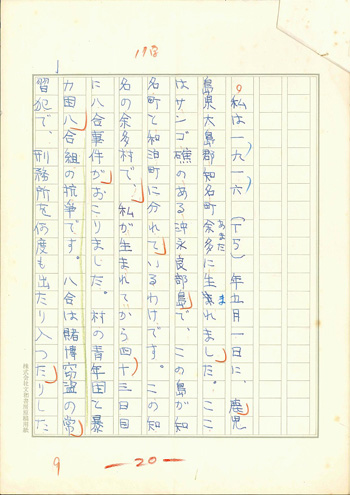 19字
私は一九一六(T5)年五月一日に、鹿児
島県大島郡知名町余多に生まれました。ここ
あまた
はサンゴ礁のある沖永良部島で、この島が知
名町と和泊町に分れているわけです。この知
名の余多村で、私が生まれてから四十三日目
に八合事件がおこりました。村の青年団と暴
力団八合組の抗争です。八合は賭博窃盗の常
習犯で、刑務所を何度も出たり入ったりした
9
—20—